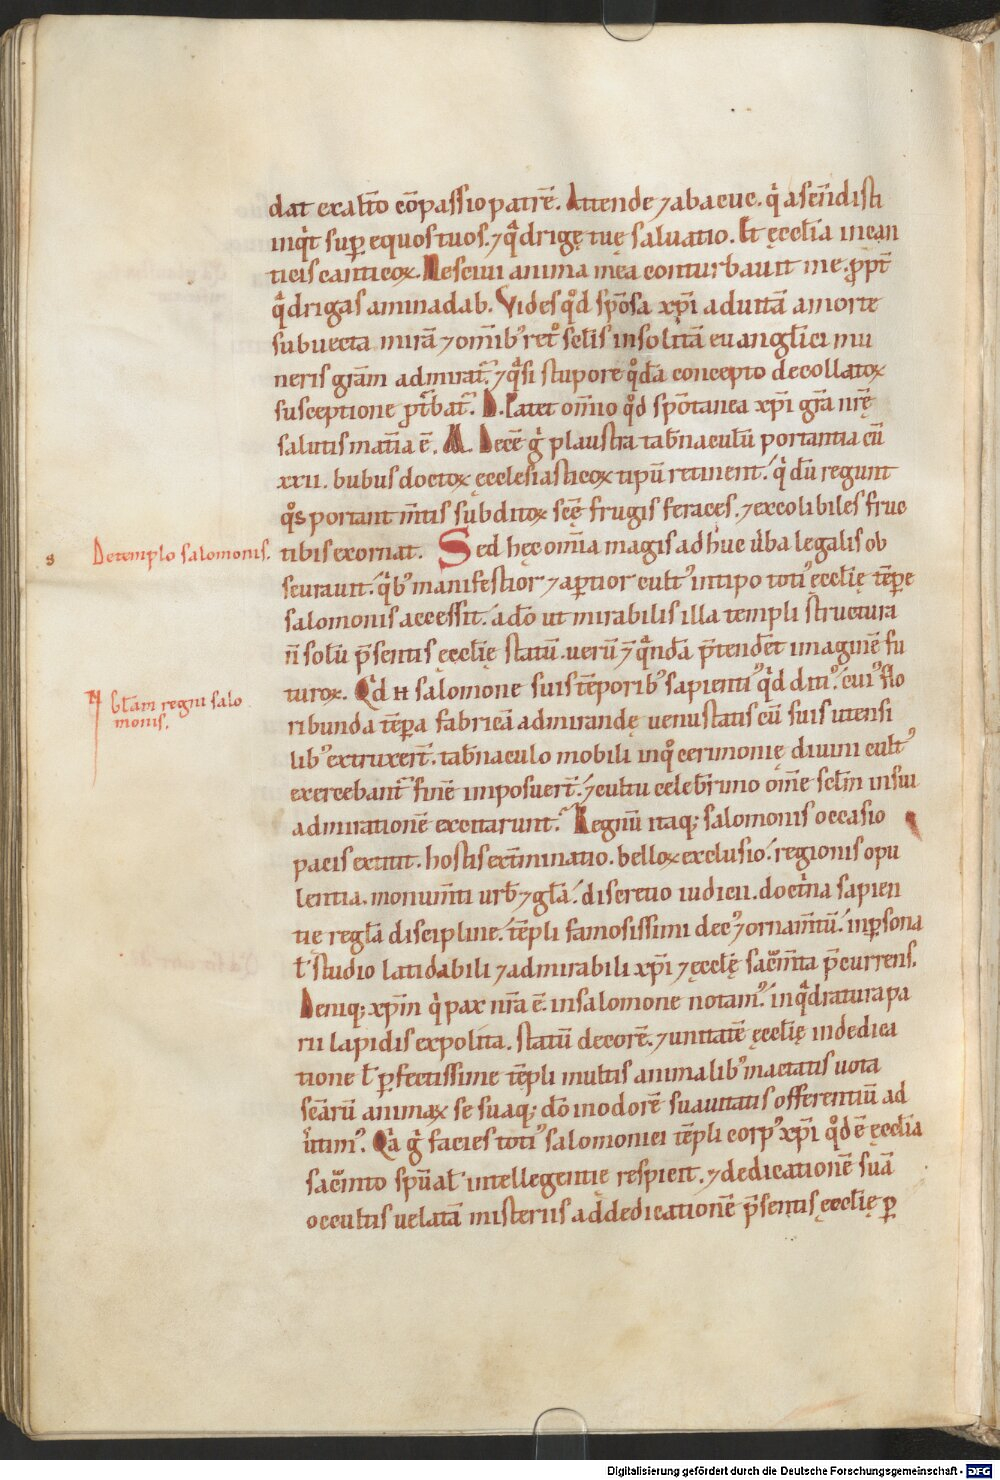 dat exalt̄o cō̄passio patrē. Attende ⁊ abacuc. qi ascendisti
inqͥt sup equos tuos. ⁊ qͣdrigę tuę saluatio. Et ęccl̄ia in can
ticis canticoꝝ. Nesciui anima mea conturbauit me. ꝓpt̄
qͣdrigas aminadab. Vides qͦd spōsa xp̄i ad uitā a morte
subuecta mirā ⁊ omīb; ret̊ sclīs insolitā euanglīci mu
neris grām admirat᷑. ⁊ qͣsi stupore qͦdā concepto de collatoꝝ
susceptione ꝓt̄bat᷑. D. Patet om̄io qͦd spōtanea xp̄i grā nr̄ę
salutis mat̄ia ē. M. Decē g̊ plaustra tab̄naculū portantia cū
xxii. bubus doctoꝝ ęcclesiasticoꝝ tipū retinent. qͥ dū regunt
qͦs portant m̄tis subditoꝝ scē̄ frugis feraces. ⁊ excolibiles fruc
De templo salomonis. tibis exornat. Sed hęc omīa magis adhuc ūba legalis ob
scurauit. qͥb; manifestior ⁊ aꝑtior cult᷒ in tipo toti᷒ ęccl̄ię tēpe
salomonis accessit. adō ut mirabilis illa templi structura
n̄ solū p̄sentis ęccl̄ię statū. uerū ⁊ qͣndā p̄tendet imaginē fu
bt̄am regni salo
monis.
turoꝝ. Qd H salomone suis tēporib; sapienti᷒ qͥd diti᷒. cui᷒ flo
ribunda tēpa fabricā admirandę uenustatis cū suis utensi
lib; extruxert̄. tab̄naculo mobili in qͦ cerimonię diuini cult᷒
exercebant᷑ finē imposuert̄. ⁊ cultu celeb̄rimo om̄e sclm̄ in sui
admirationē excitarunt. Regnū itaq; salomonis occasio
pacis extitit. hostis ext̄minatio. belloꝝ exclusio. regionis opu
lentia. monum̄ti urb̄ ⁊ glā. discretio iudicii. doctͥna sapien
tię reglā discipline. tēpli famosissimi dec᷒ ⁊ ornam̄tū. in ꝑsona
ł studio laudabili ⁊ admirabili xp̄i ⁊ ęccl̄ę sac̄mta p̄currens.
Deniq; xp̄m qͥ pax nr̄a ē. in salomone notam᷒. in qͣdratura pa
rii lapidis expolita. statū decorē. ⁊ unitatē ęccl̄ię in dedica
tione ł ꝑfectissime tēpli multis animalib; mactatis uota
scārū animaꝝ se suaq; dō in odorē suauitatis offerentiū ad
u̅tim᷒. Qͥa g̊ facies toti᷒ salomonici tēpli corp᷒ xp̄i qͦd ē ęccl̄ia
sac̄mto spūał intellegentie respicit. ⁊ dedicationē suā
occultis uelatā misteriis ad dedicationē p̄sentis ęccl̄ię ꝑ
Digitalisierung gefördert durch die Deutsche Forschungsgemeinschaft - DFG